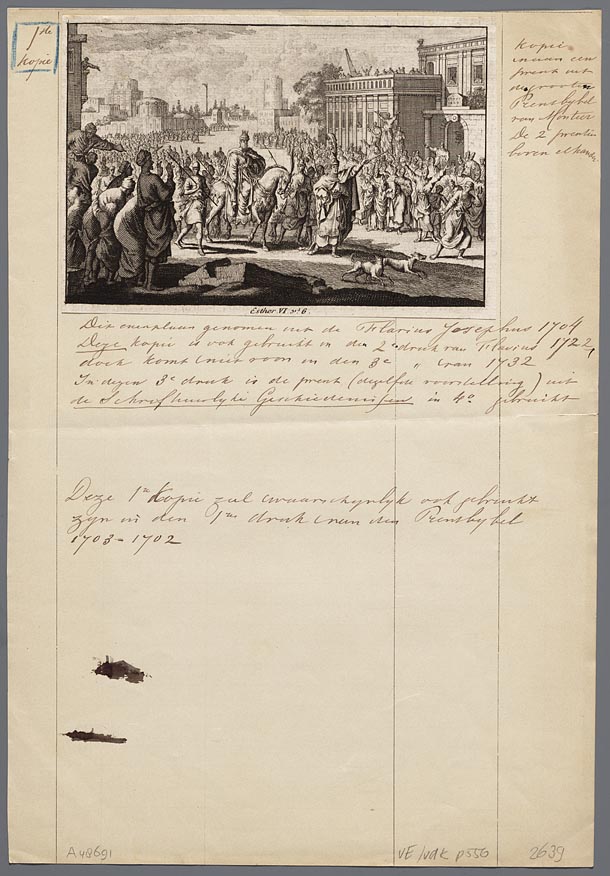 1ste
Kopie
Kopie
naar een
prent uit
de groote
Prentbybel
van Mortier
De 2 prenten
boven elkander
Esther. VI. vs. 6.
Dit exemplaar genomen uit de Flavius Josephus 1704
Deze kopie is ook gebruikt in den 2e druk van Flavius 1722,
doch komt niet voor in den 3e " van 1732
In dezen 3e druk is de prent (dezelfde voorstelling) uit
de Schriftuurlyke Geschiedenissen in 4o gebruikt
Deze 1e Kopie zal waarschynlyk ook gebruikt
zyn in den 1en druk van den Prentbybel
1703 = 1702
A49691
VE/vdK p556
2639